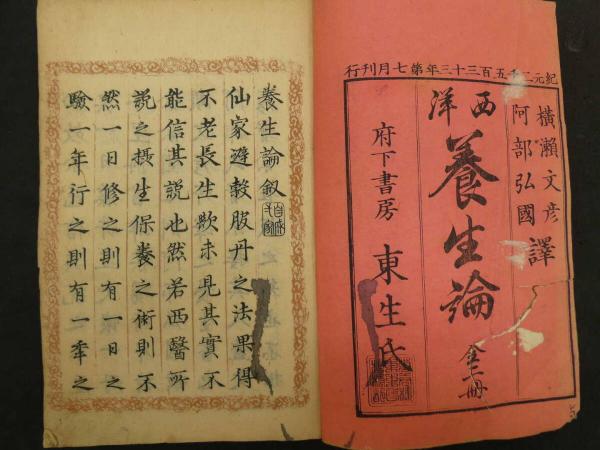 紀元二千五百三十三年第七月刊行
橫瀨文彦
阿部弘國
譯
西洋
養生論
全二冊
府下書房
東生氏
養生論敘
仙家避穀服丹之法果得
不老長生歟未見其實不
能信其說也然若西醫所
說之攝生保養之術則不
然一日修之則有一日之
驗一年行之則有一年之